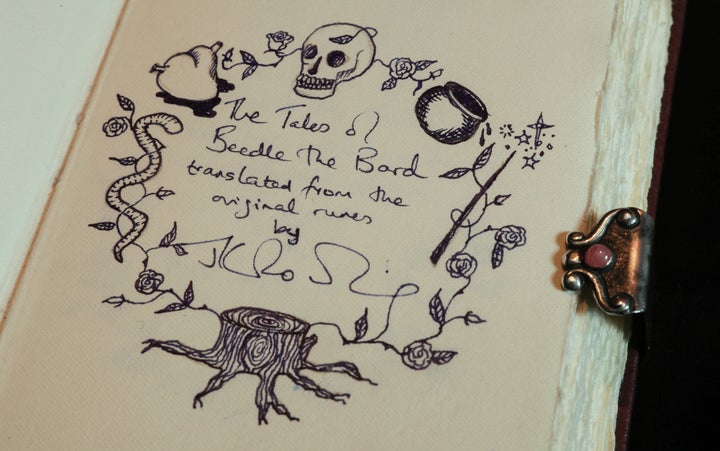 The Tales of
Beedle the Bard
translated from the
original runes
by
JK Rowling